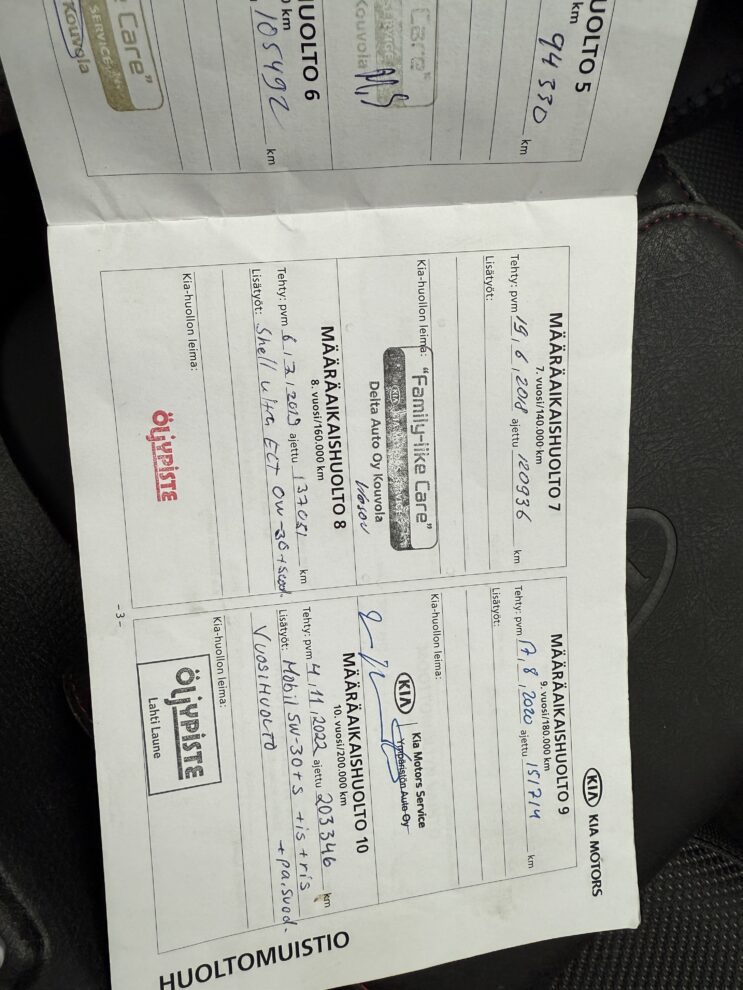 HUOLTO 5
km 94 330 km
Care"
Kouvola
HUOLTO 6
km
105492 km
Care"
SERVICE
Kouvola
KIA KIA MOTORS
MÄÄRÄAIKAISHUOLTO 7
7. vuosi/140.000 km
Tehty: pvm 19,6,2018 ajettu 120936 km
Lisätyöt:
Kia-huollon leima:
"Family-like Care"
KIA
Delta Auto Oy Kouvola
MÄÄRÄAIKAISHUOLTO 8
8. vuosi/160.000 km
Tehty: pvm 6,2,2019 ajettu 137051 km
Lisätyöt: Shell ultra ECT 0W-30+suod.
Kia-huollon leima:
ÖLJYPISTE
MÄÄRÄAIKAISHUOLTO 9
9. vuosi/180.000 km
Tehty: pvm 17,8,2020 ajettu 151714 km
Lisätyöt:
Kia-huollon leima:
KIA Kia Motors Service
Ympäristön Auto Oy
MÄÄRÄAIKAISHUOLTO 10
10. vuosi/200.000 km
Tehty: pvm 4,11,2022 ajettu 203346 km
Lisätyöt: Mobil 5W-30+s +is +ris
VUOSIHUOLTO +pa.suod.
Kia-huollon leima:
ÖLJYPISTE
Lahti Laune
- 3 -
HUOLTOMUISTIO